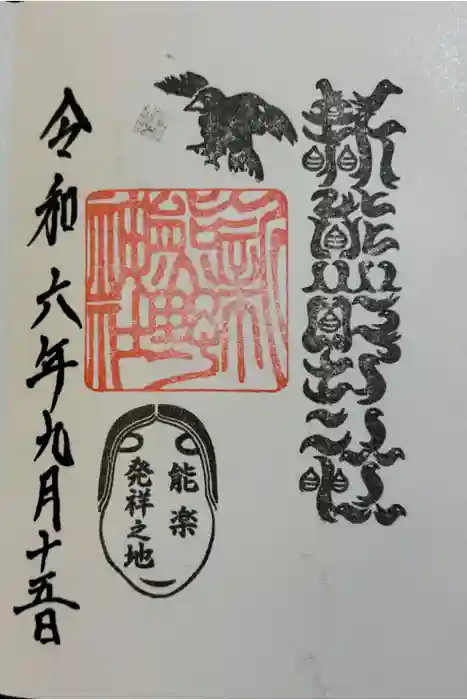 新熊野神社
新熊野神社
能楽
発祥之地
令和六年九月十五日